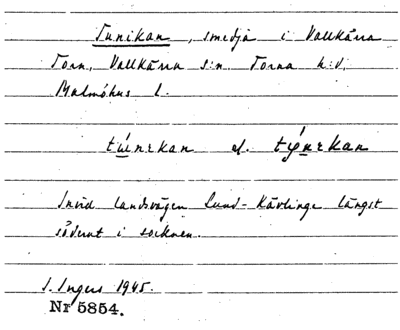 Tunikan, smedja i Vallkärra
Torn, Vallkärra s:n. Torna h:d,
Malmöhus l.
Invid landsvägen Lund-Kävlinge längst
söderut i socknen.
S. Ingers 1945.
Nr 5854.